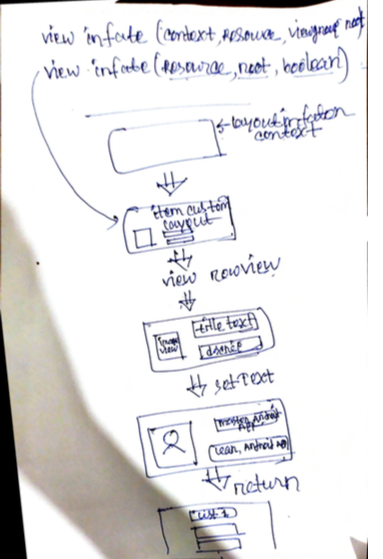 view infate (context, resource, viewgroup root)
view infate (resource, root, boolean)
layoutinflation
context
item custom
layout
view rowview
title text
image
view
setText
master Android
App
Lean, Android
return
List